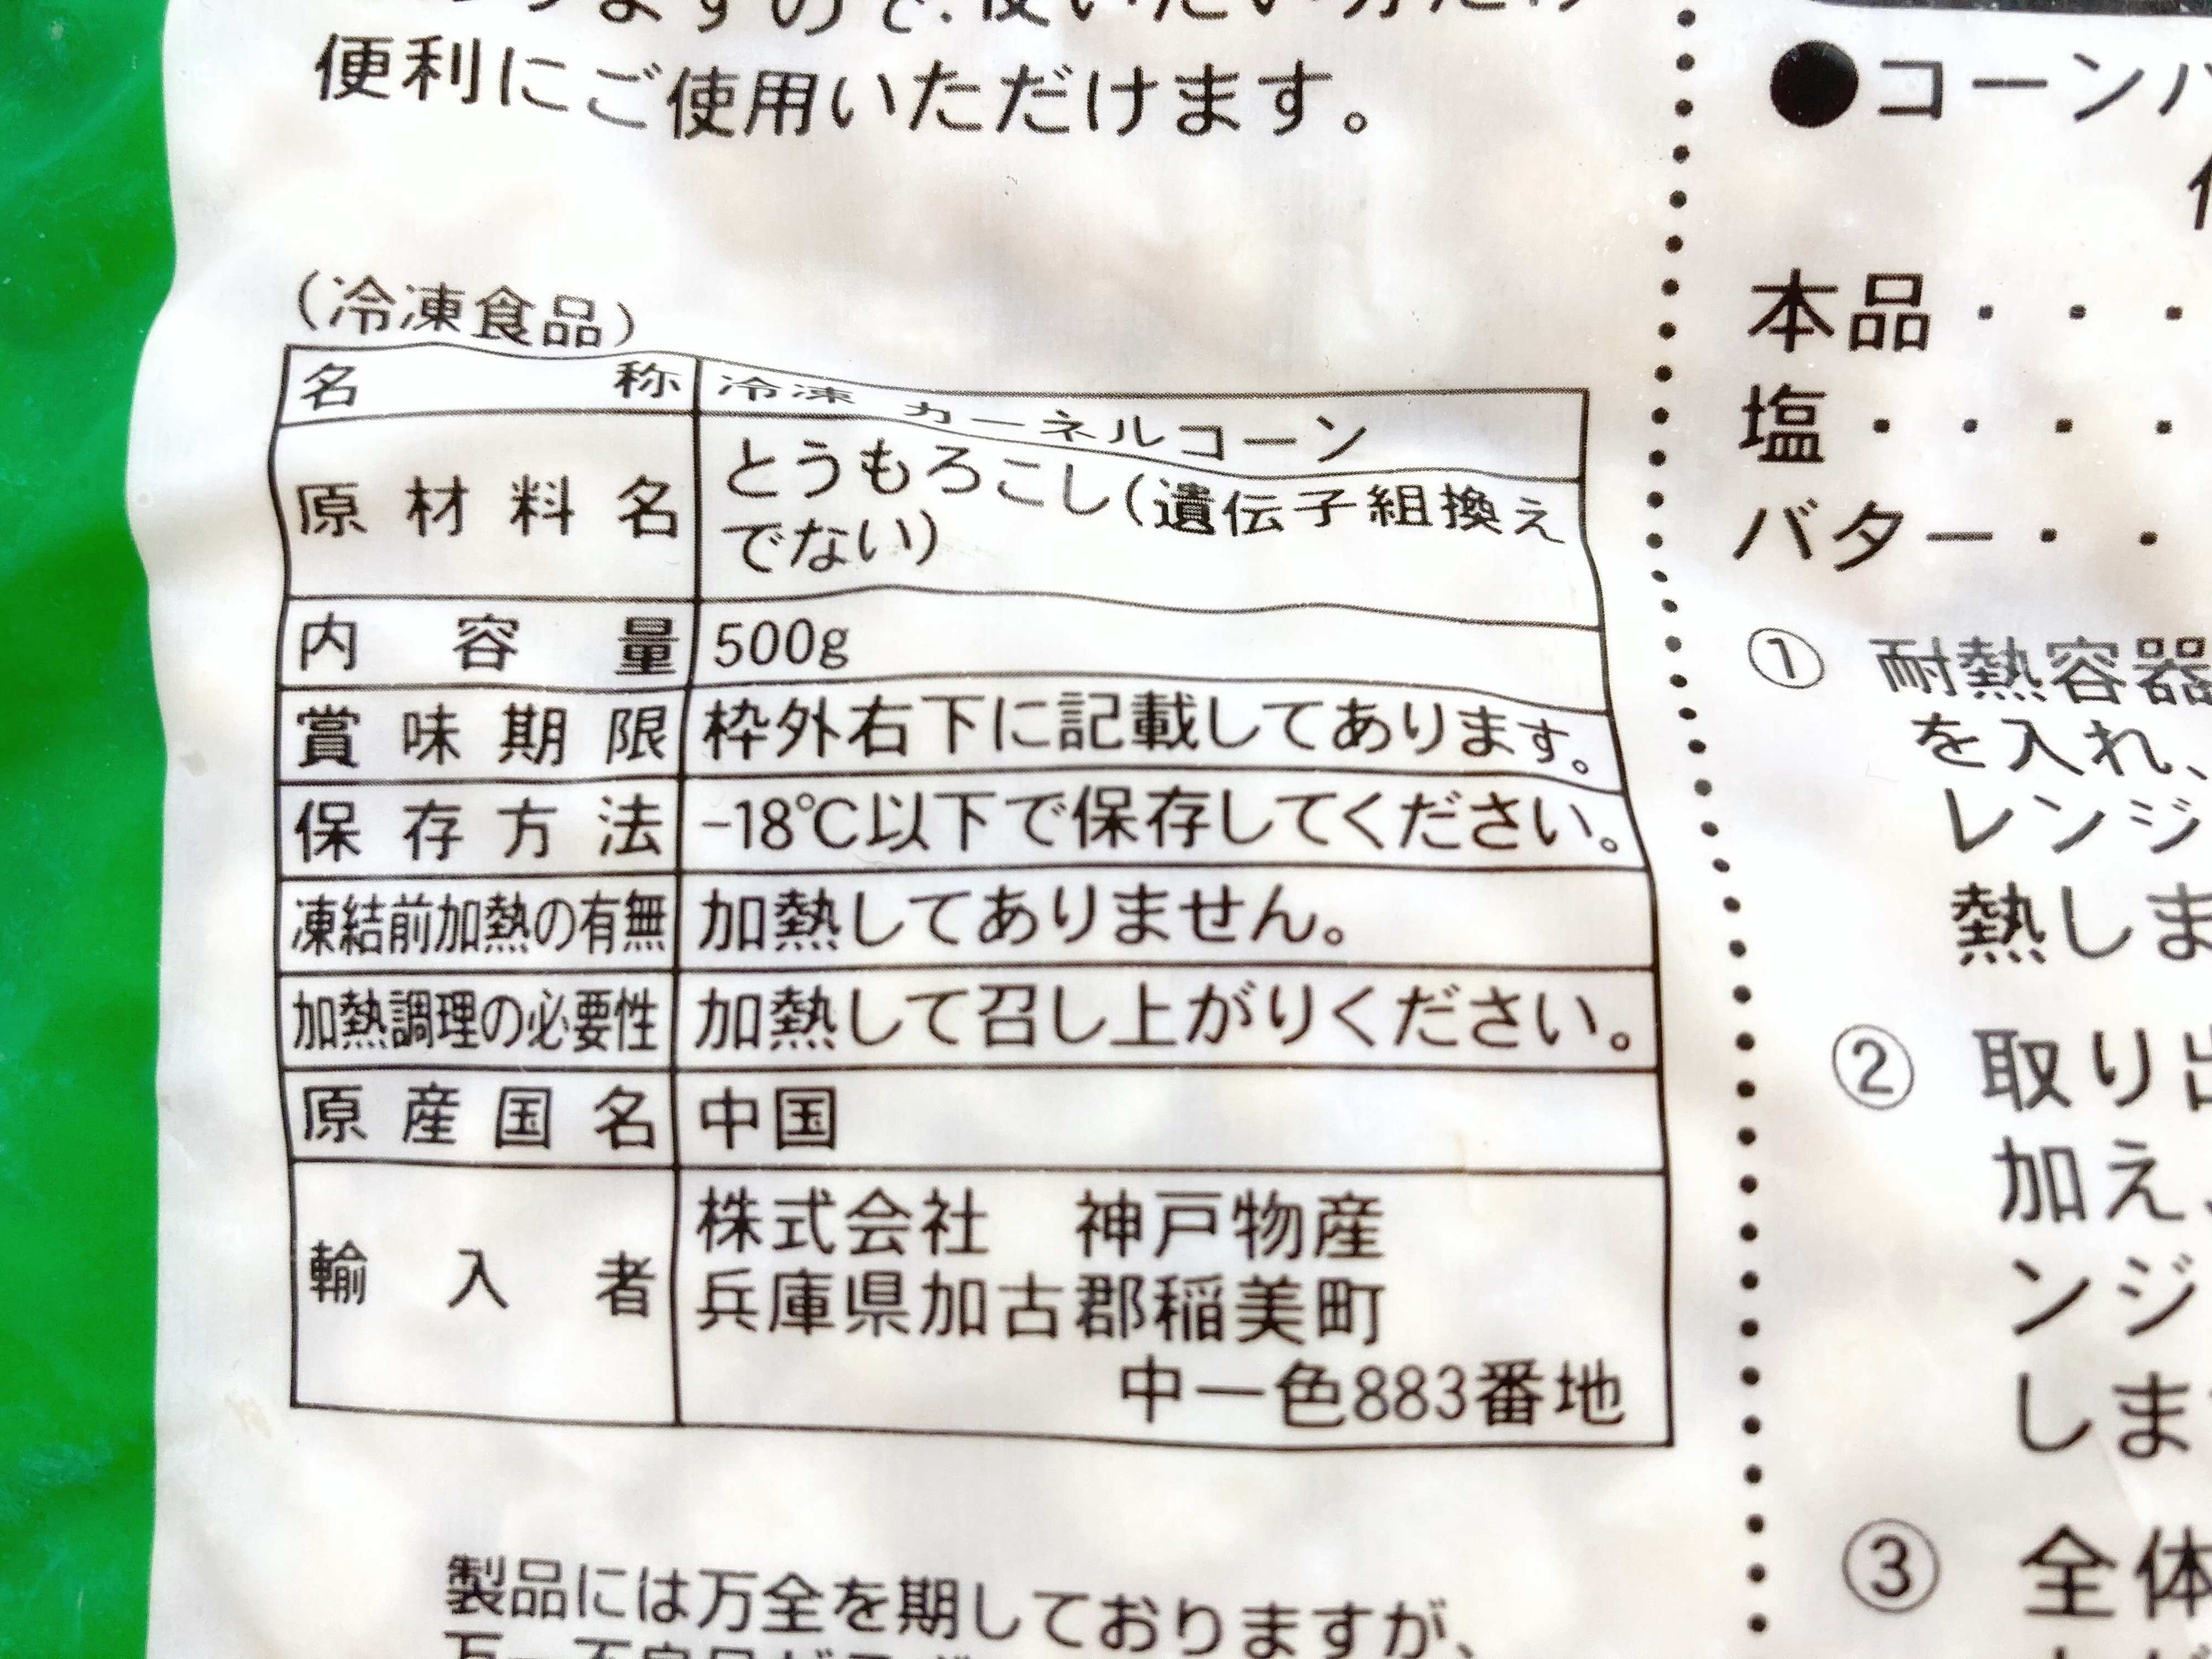 便利にご使用いただけます。
(冷凍食品)
名称 冷凍 カーネルコーン
原材料名 とうもろこし(遺伝子組換え
でない)
内容量 500g
賞味期限 枠外右下に記載してあります。
保存方法 -18℃以下で保存してください。
凍結前加熱の有無 加熱してありません。
加熱調理の必要性 加熱して召し上がりください。
原産国名 中国
輸入者 株式会社 神戸物産
兵庫県加古郡稲美町
中一色883番地
製品には万全を期しておりますが、
●コーンバ
本品・・・
塩・・・・
バター・・
① 耐熱容器
を入れ、
レンジ
熱しま
② 取り出
加え、
ンジ
しま
③ 全体